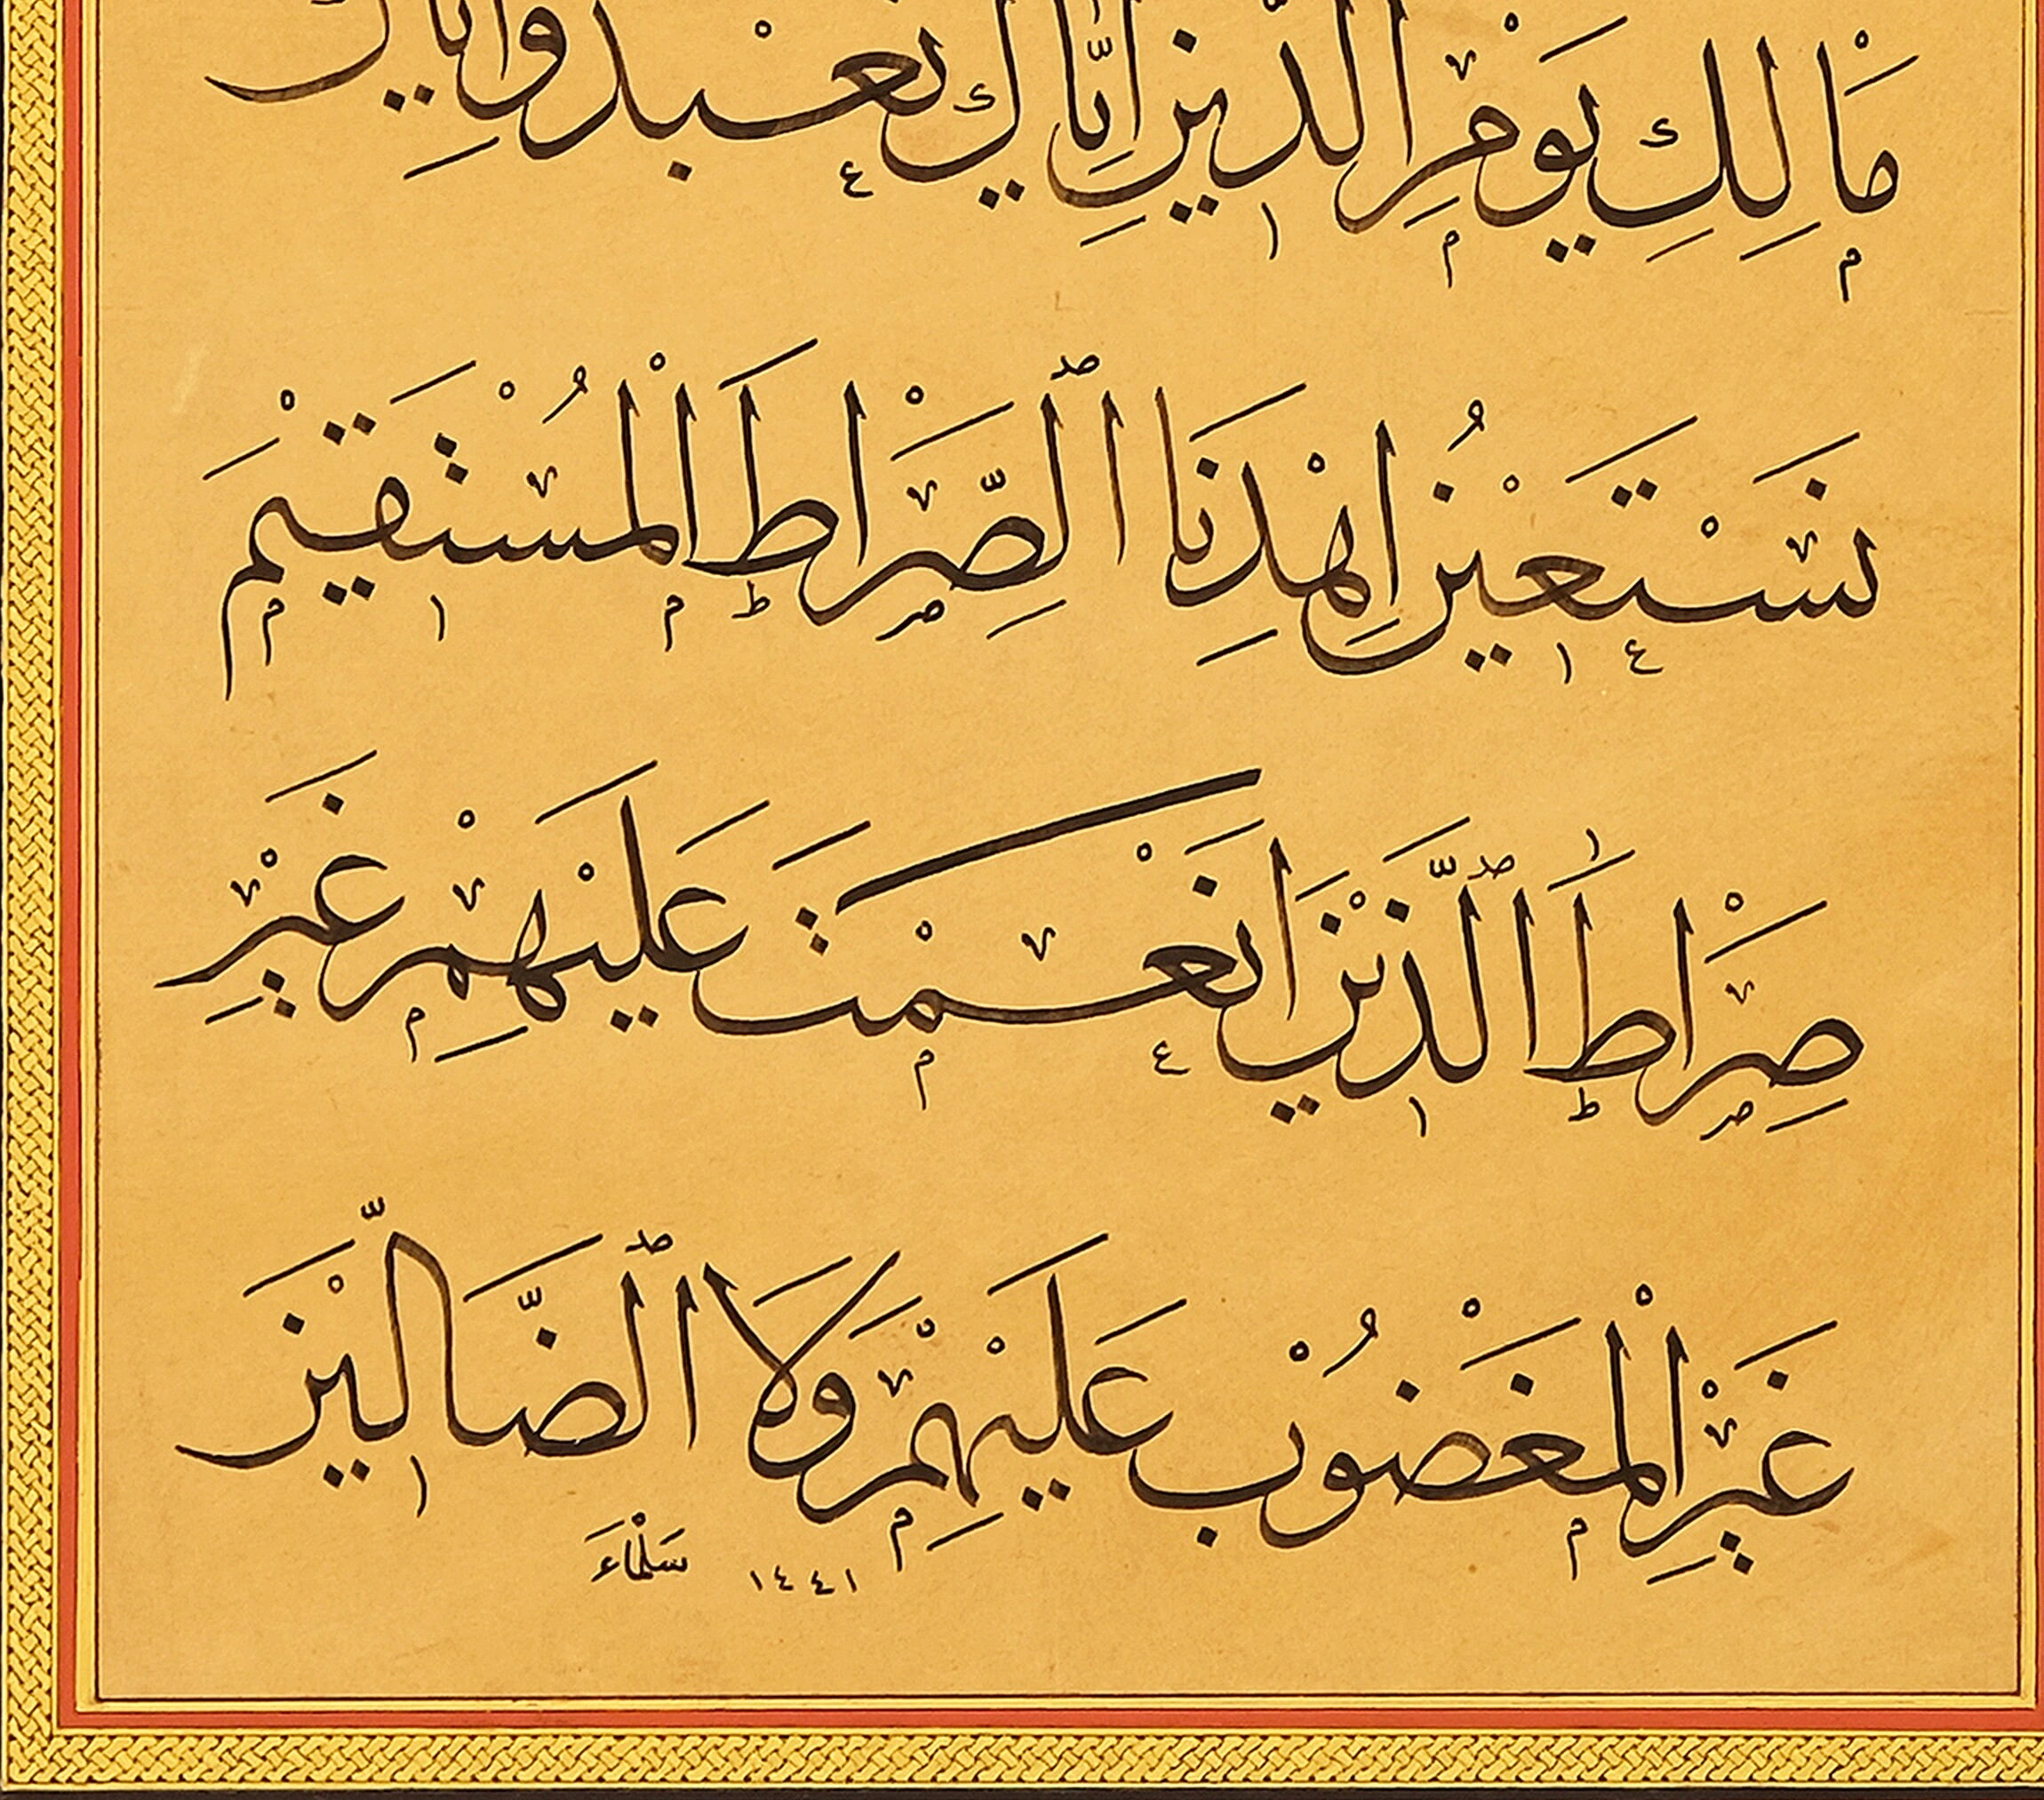 مَالِكِ يَوْمِ الدِّينِ إِيَّاكَ نَعْبُدُ وَإِيَّاكَ
نَسْتَعِينُ اِهْدِنَا ٱلصِّرَاطَ الْمُسْتَقِيمَ
صِرَاطَ ٱلَّذِينَ اَنْعَمْتَ عَلَيْهِمْ غَيْرِ
غَيْرِ الْمَغْضُوبِ عَلَيْهِمْ وَلَا ٱلضَّالِّينَ
سَلْمَاءَ ١٤٤١